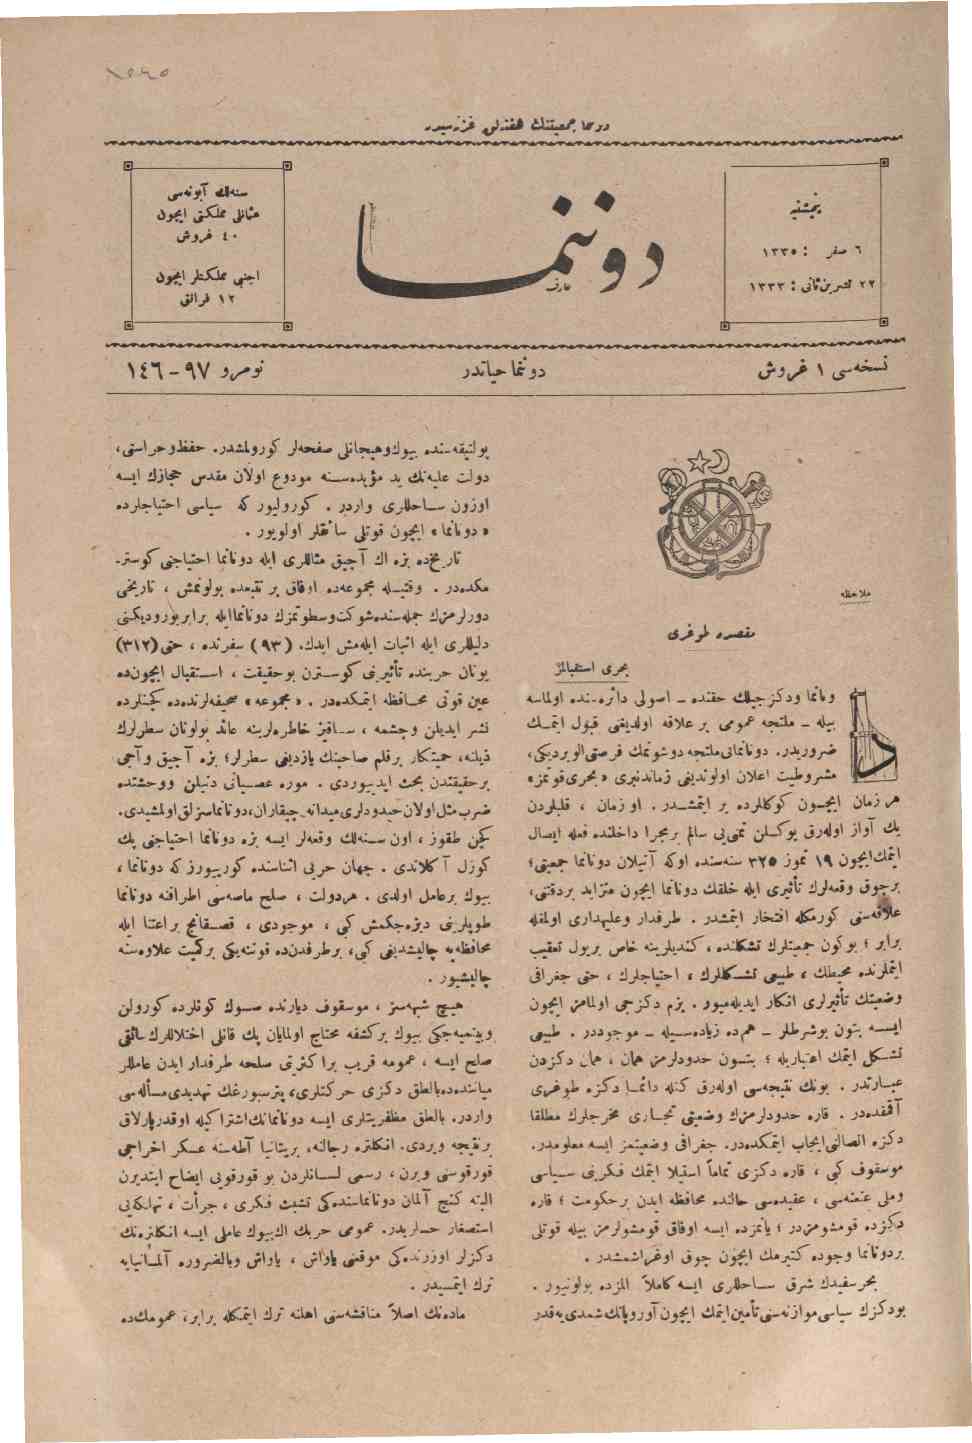 ١٥٦٥
دونما جمعیتنك هفتەلق غزتەسیدر
پنجشنبه
٦ صفر : ١٣٣٥
٢٢ تشرین‌ثانی : ١٣٣٣
دوننما
عارف
سنەلك آبونەسی
عثمانلی مملکتی ایچون
٤٠ غروش
اجنبی مملکتلر ایچون
١٢ فرانق
نسخەسی ١ غروش
دوننما حیاتدر
نومرو ٩٧ - ١٤٦
ملاحظه
مقصده طوغری
بحری استقبالمز
وننما ودکزجیلك حقنده - اصولی دائرەسنده اولماسه
بیله - ملتجه عمومی بر علاقه اولدیغنی قبول ایتمك
ضروریدر. دوناتمانی ملتجه دوشونمك فرصتی الویردیکی،
مشروطیت اعلان اولوندیغی زماندنبری « بحری قوتمز»
هر زمان ایچون کوکللرده یر ایتمشدر. او زمان ، قلبلردن
یك آواز اولەرق یوکسلن تمنی‌یی سالم بر مجرا داخلنده فعله ایصال
ایتمك ایچون ١٩ تموز ٣٢٥ سنەسنده اوکه آتیلان دونانما جمعیتی؛
برچوق وقعەلرك تأثیری ایله خلقك دونانما ایچون متزاید بردقتنی،
علاقەسنی کورمکله افتخار ایتمشدر. طرفدار وعلیهداری اولمقله
برابر ؛ بوکون جمعیتلرك تشکلنده ، کندیلرینه خاص بریول تعقیب
ایتملرنده محیطك ، طبیعی تشکللرك ، احتیاجلرك ، حتی جغرافی
وضعیتك تأثیرلری انکار ایدیلەمیور. بزم دکزجی اولمامز ایچون
ایسه بتون بوشرطلر - همده زیادەسیله - موجوددر . طبیعی
تشکل ایتمك اعتباریله ؛ بتون حدودلرمز همان ، همان دکزدن
عبارتدر . بونك نتیجەسی اولەرق کتله دائما دکزه طوغری
آقمقدەدر . قاره حدودلرمزك وضعیتی تجاری مخرجلرك مطلقا
دکزه اتصالنی ایجاب ایتمکدەدر. جغرافی وضعیتمز ایسه معلومدر.
موسقوف کبی ، قاره دکزی تماماً استیلا ایتمك فکرینی سیاسی
وملی عنعنەسی ، عقیدەسی حالنده محافظه ایدن برحکومت ؛ قاره
دکزده قومشومزدر ؛ یانمزده ایسه اوفاق قومشولرمز بیله قوتلی
بردونانما وجوده کتیرمك ایچون چوق اوغراشمشدر .
بحر سفیدك شرق ساحللری ایسه کاملاً المزده بولونیور .
بودکزك سیاسی موازنەسنی تأمین ایتمك ایچون آوروپانك شمدی‌یەقدر
پولتیقەسنده بیوك وهیجانلی صفحەلر کورولمشدر. حفظ وحراستی،
دولت علیەنك ید مؤیدەسنه مودوع اولان مقدس حجازك ایسه
اوزون ساحللری واردر . کورولیور که سیاسی احتیاجلرده
« دونانما » ایچون قوتلی سائقلر اولویور .
تاریخده بزه اك آچیق مثاللری ایله دونانما احتیاجنی کوستر-
مکدەدر . وقتیله مجموعەده اوفاق بر تتبعده بولونمش ، تاریخی
دورلرمزك جملەسنده شوکت وسطوتمزك دونانما ایله برابر یورودیکنی
دلیللری ایله اثبات ایلەمش ایدك. (٩٣) سفرنده ، حتی (٣١٢)
یونان حربنده تأثیرینی کوسترن بوحقیقت ، استقبال ایچون‌ده
عین قوتی محافظه ایتمکدەدر . « مجموعه » صحیفەلرنده‌ده کچنلرده
نشر ایدیلن وچشمه ، ساقیز خاطرەلرینه عائد بولونان سطرلرك
ذیلنه، حمیتکار برقلم صاحبنك یازدیغی سطرلر؛ بزه آچیق وآجی
برحقیقتدن بحث ایدییوردی . موره عصیانی دنیلن ووحشتده
ضرب مثل اولان حیدودلری میدانه چیقاران، دونانماسزلق اولمشیدی.
کچن طقوز ، اون سنەلك وقعەلر ایسه بزه دونانما احتیاجنی پك
کوزل آکلاتدی . جهان حربی اثناسنده کوریبورز که دونانما ،
بیوك برعامل اولدی . هردولت ، صلح ماصەسی اطرافنه دونانما
طوپلرینی دیزەجکمش کبی ، موجودی ، قصقانج براعتنا ایله
محافظەیه چالیشدیغی کبی، برطرفدن‌ده قوتنەیکی برکمیت علاوەسنه
چالیشیور .
هیچ شبهەسز ، موسقوف دیارنده صوك کونلرده کورولن
وبیتمیەجکی بیوك برکشفه محتاج اولمایان پك قانلی اختلاللرك سائقی
صلح ایسه ، عمومه قریب براکثریتی صلحه طرفدار ایدن عاملر
میاننده‌ده بالطق دکزی حرکتلری، پترسبورغك تهدیدی مسألەسی
واردر. بالطق مظفریتلری ایسه دونانمانك اشتراکیله اوقدر پارلاق
برنتیجه ویردی. انکلتره رجالنه، بریتانیا آطەسنه عسکر اخراجی
قورقوسنی ویرن ، رسمی لسانلردن بو قورقویی ایضاح ایتدیرن
البته کنج آلمان دونانماسنده‌کی تشبث فکری ، جرأت ، تهلکەیی
استصغار حسلریدر. عمومی حربك اك بیوك عاملی ایسه انکلترەنك
دکزلر اوزرنده‌کی موقعنی یاواش ، یاواش وبالضروره آلمانیایه
ترك ایتمسیدر .
مادەنك اصلاً مناقشەسنی اهلنه ترك ایتمکله برابر، عمومك‌ده